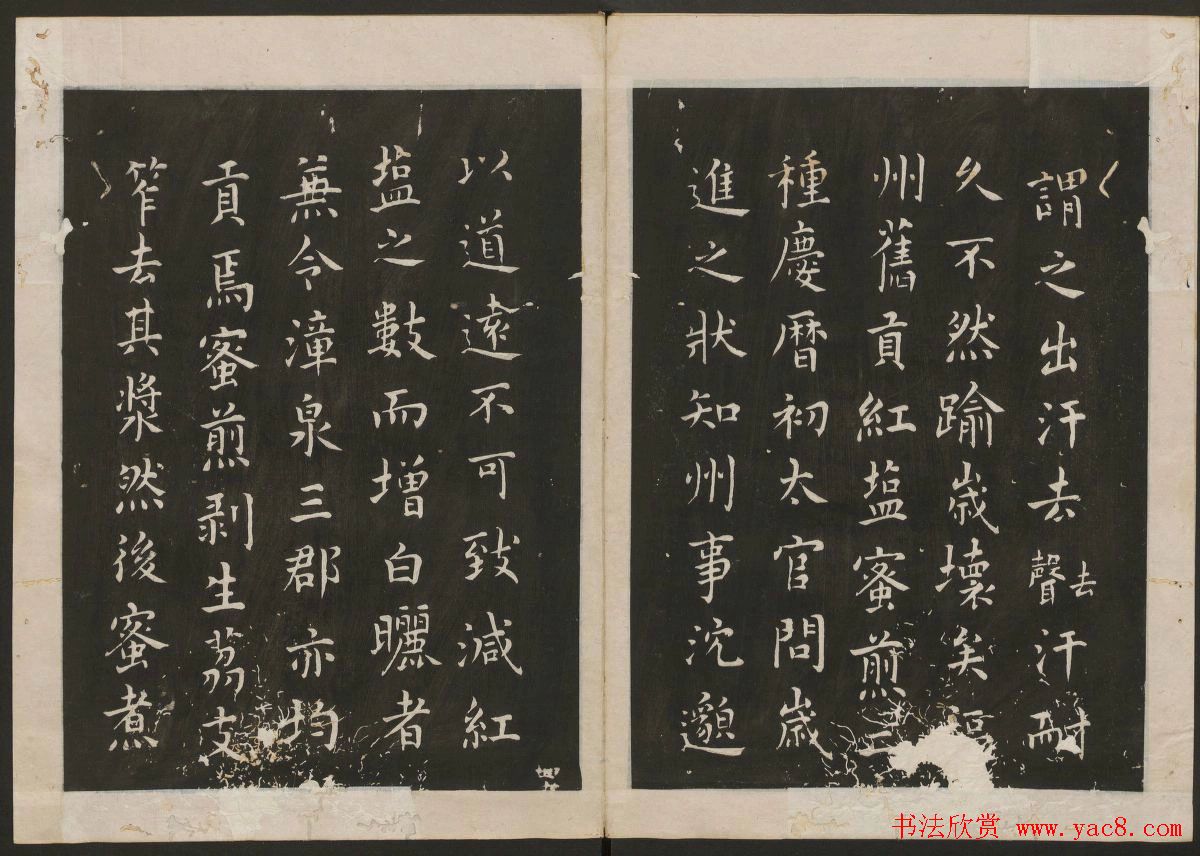 謂之出汗去去聲汗耐
久不然踰歲壞矣福
州舊貢紅塩蜜煎二
種慶曆初太官問歲
進之狀知州事沈邈
以道遠不可致減紅
塩之數而增白曬者
蕪令漳泉三郡亦均
貢焉蜜煎剥生荔支
笮去其漿然後蜜煮
书法欣赏 www.yac8.com